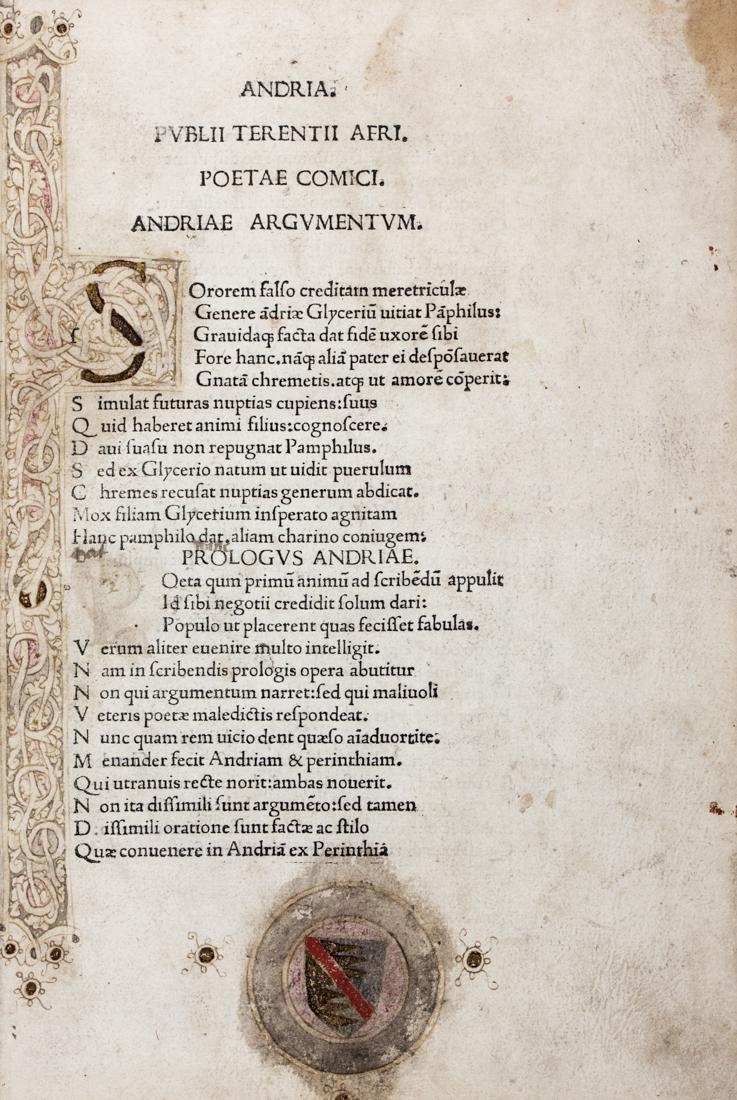 ANDRIA.
PVBLII TERENTII AFRI.
POETAE COMICI.
ANDRIAE ARGVMENTVM.
S Ororem falſo creditam meretriculæ
Genere ādriæ Glyceriū uitiat Pāphilus:
Grauidaq; facta dat fidē uxorē ſibi
Fore hanc.nāq; aliā pater ei deſpōſauerat
Gnatā chremetis.atq; ut amorē cōperit:
S imulat futuras nuptias cupiens:ſuus
Q uid haberet animi filius:cognoſcere.
D aui ſuaſu non repugnat Pamphilus.
S ed ex Glycerio natum ut uidit puerulum
C hremes recuſat nuptias generum abdicat.
Mox filiam Glycerium inſperato agnitam
Hanc pamphilo dat.aliam charino coniugem:
dat
PROLOGVS ANDRIAE.
P Oeta qum primū animū ad ſcribēdū appulit
Id ſibi negotii credidit ſolum dari:
Populo ut placerent quas feciſſet fabulas.
V erum aliter euenire multo intelligit.
N am in ſcribendis prologis opera abutitur
N on qui argumentum narret:ſed qui maliuoli
V eteris poetæ maledictis reſpondeat.
N unc quam rem uicio dent quæſo aīaduortite:
M enander fecit Andriam & perinthiam.
Qui utranuis recte norit:ambas nouerit.
N on ita diſſimili ſunt argumēto:ſed tamen
D. iſſimili oratione ſunt factæ ac ſtilo
Quæ conuenere in Andriā ex Perinthiā